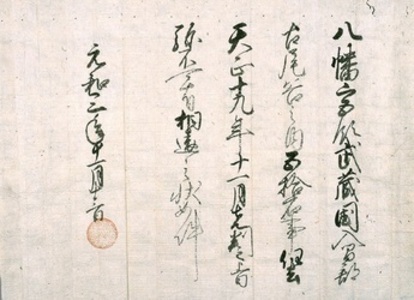 八幡宮領武蔵国入間郡
古尾谷之内五拾石事
天正十九年十一月先判之旨
弥不可有相違之状如件
元和二年十一月